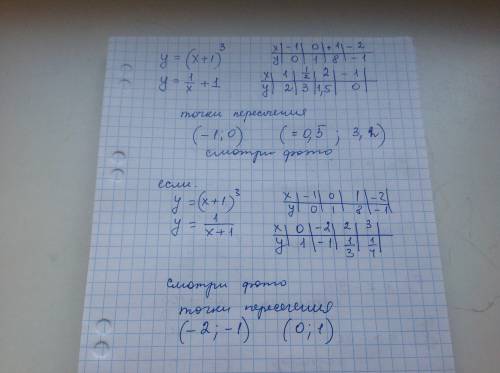 y = (x+1)³
x | -1 | 0 | +1 | -2
y | 0 | 1 | 8 | -1
y = 1/x + 1
x | 1 | 1/2 | 2 | -1
y | 2 | 3 | 1,5 | 0
точки пересечения
(-1; 0) (≈0,5 ; 3,2)
смотри фото
если.
y = (x+1)³
x | -1 | 0 | 1 | -2
y | 0 | 1 | 8 | -1
y = 1/(x+1)
x | 0 | -2 | 2 | 3
y | 1 | -1 | 1/3 | 1/4
смотри фото
точки пересечения
(-2; -1) (0; 1)